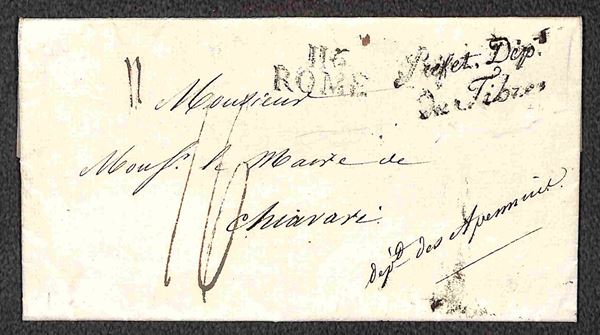 116
ROME
Préfet. Dép.t
du Tibre.
Monsieur
Mons.r le Maire de
Chiavari.
dép.t des Apennins.